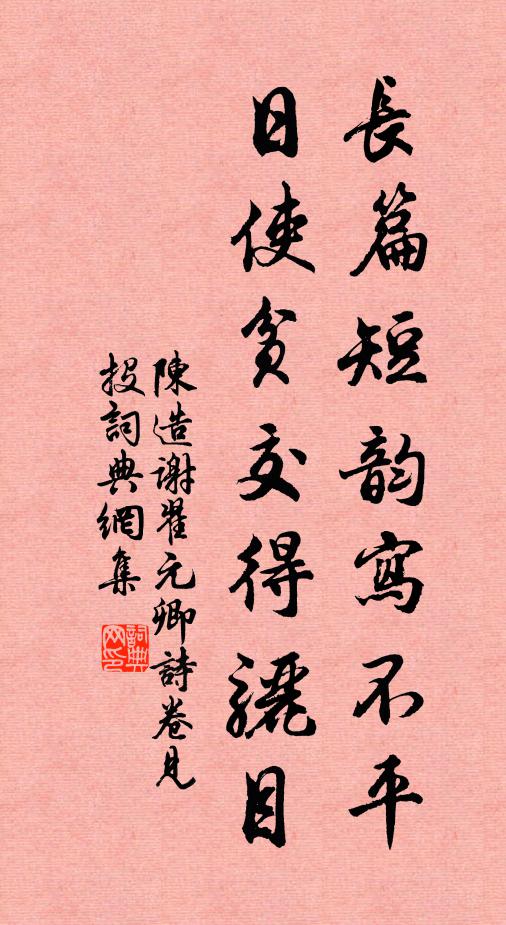 長篇短韵寫不平
日使貧交得驪目
陳造謝翟元卿詩卷見
投詞典網集
詞典网印